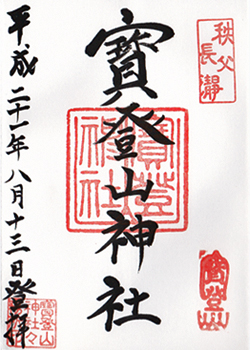 秩父
長瀞
寳登山神社
寳登山
神社
寳登山
平成二十一年八月十三日登拝
寳登山
神社々